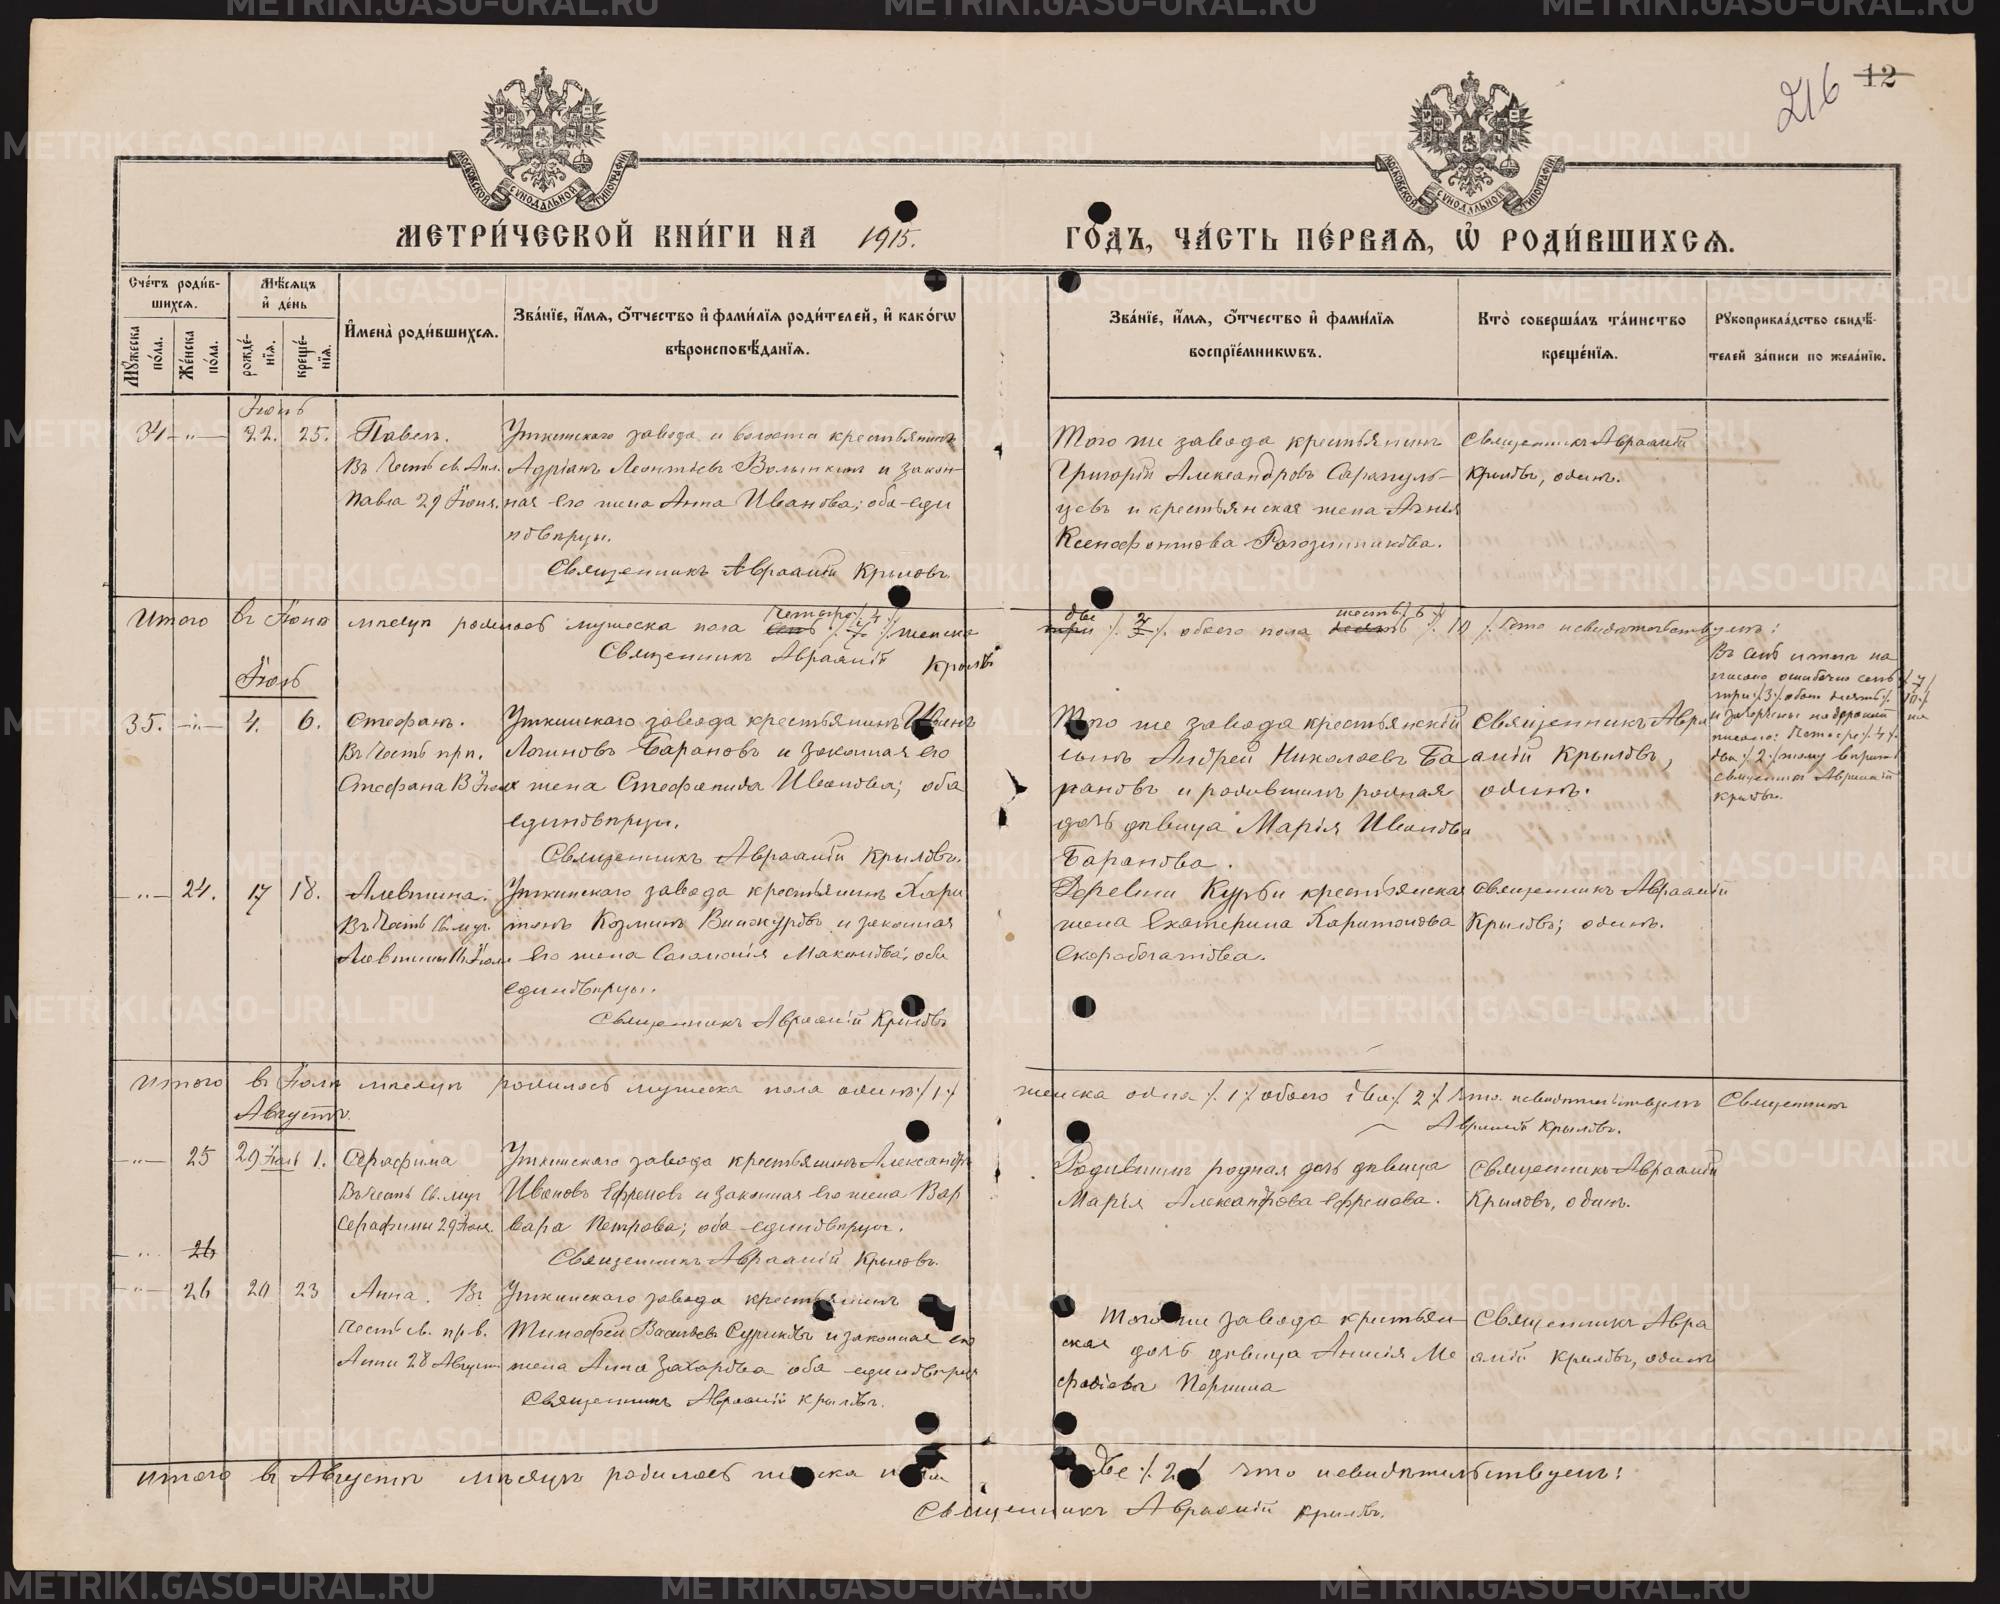 216 12
МОСКОВСКОЙ СѴНОДАЛЬНОЙ ТИПОГРАФІИ
МОСКОВСКОЙ СѴНОДАЛЬНОЙ ТИПОГРАФІИ
МЕТРИ́ЧЕСКОЙ КНИ́ГИ НА 1915. ГО́ДЪ, ЧА́СТЬ ПЕ́РВАѦ, Ѽ РОДИ́ВШИХСѦ.
Сче́тъ роди́в-
шихсѧ.
Мꙋ́жеска по́ла.
Же́нска по́ла.
Мѣ́сѧцъ
и҆ де́нь
рожде́-
нїѧ.
креще́-
нїѧ.
И҆мена̀ роди́вшихсѧ.
Зва́нїе, и҆́мѧ, ѻ҆́тчество и҆ фами́лїѧ роди́телей, и҆ како́гѡ
вѣроисповѣ́данїѧ.
Зва́нїе, и҆́мѧ, ѻ҆́тчество и҆ фами́лїѧ
воспрїе́мникѡвъ.
Кто̀ соверша́лъ та́инство
креще́нїѧ.
Рꙋкоприкла́дство свидѣ́-
телей за́писи по жела́нїю.
Іюнь
34 -"- 22. 25. Павелъ.
Въ честь св. Ап.
Павла 29 Іюня.
Уткинскаго завода и волости крестьянинъ
Адріанъ Леонтьевъ Волынкинъ и закон-
ная его жена Анна Иванова; оба еди
новѣрцы.
Священникъ Авраамій Крыловъ.
Того же завода крестьянинъ
Григорій Александровъ Сарапуль-
цевъ и крестьянская жена Агнія
Ксенофонтова Рогозинникова.
Священникъ Авраамій
Крыловъ, одинъ.
Итого въ Іюнѣ мѣсяцѣ родилось мужеска пола четыре /4/ женска
две /2/ обоего пола шесть /6/ Что и свидѣтельствуемъ:
Священникъ Авраамій Крыловъ
Въ семъ итогѣ на
писано ошибочно семь /7/
три /3/ обоего десять /10/
и зачеркнуты на второй
писано: четыре /4/
два /2/ тому вѣрно
священникъ Авраамій
Крыловъ.
Іюль
35. -"- 4. 6. Стефанъ.
Въ честь прп.
Стефана 13 Іюля
Уткинскаго завода крестьянинъ Иванъ
Логиновъ Барановъ и законная его
жена Стефанида Иванова; оба
единовѣрцы.
Священникъ Авраамій Крыловъ.
Того же завода крестьянскій
сынъ Андрей Николаевъ Ба
рановъ и родившимъ родная
дочь дѣвица Марія Иванова
Баранова.
Священникъ Авра
амій Крыловъ,
одинъ.
-"- 24. 17 18. Алевтина.
Въ честь св. муч.
Алевтины 16 Іюля
Уткинскаго завода крестьянинъ Хари
тонъ Козминъ Винокуровъ и законная
его жена Саломонія Максимова; оба
единовѣрцы.
Священникъ Авраамій Крыловъ
Деревни Курьи крестьянская
жена Екатерина Харитонова
Скоробогатова.
Священникъ Авраамій
Крыловъ; одинъ.
Итого въ Іюлѣ мѣсяцѣ родилось мужеска пола одинъ /1/ женска одна /1/ обоего два /2/ Что и свидѣтельствуемъ Священникъ
Авраамій Крыловъ.
Августъ.
-"- 25 29 Іюль 1. Серафима
Въ честь св. муч.
Серафимы 29 Іюля.
Уткинскаго завода крестьянинъ Александръ
Ивановъ Ефремовъ и законная его жена Вар
вара Петрова; оба единовѣрцы.
Священникъ Авраамій Крыловъ.
Родившимъ родная дочь дѣвица
Марія Александрова Ефремова.
Священникъ Авраамій
Крыловъ, одинъ.
-"- 26
-"- 26 20 23 Анна. Въ
честь св. прв.
Анны 28 Августа
Уткинскаго завода крестьянинъ
Тимофей Васильевъ Суриковъ и законная его
жена Анна Захарова оба единовѣрцы
Священникъ Авраамій Крыловъ.
Того же завода крестьян-
ская дочь дѣвица Анисія Ме
фодіева Пернина
Священникъ Авра
амій Крыловъ, одинъ
Итого въ Августѣ мѣсяцѣ родилось женска пола две /2/ что и свидѣтельствуемъ:
Священникъ Авраамій Крыловъ.
METRIKI.GASO-URAL.RU